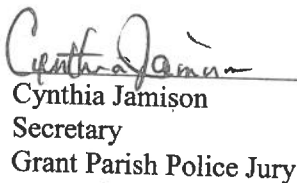 Cynthia Jamison
Cynthia Jamison
Secretary
Grant Parish Police Jury